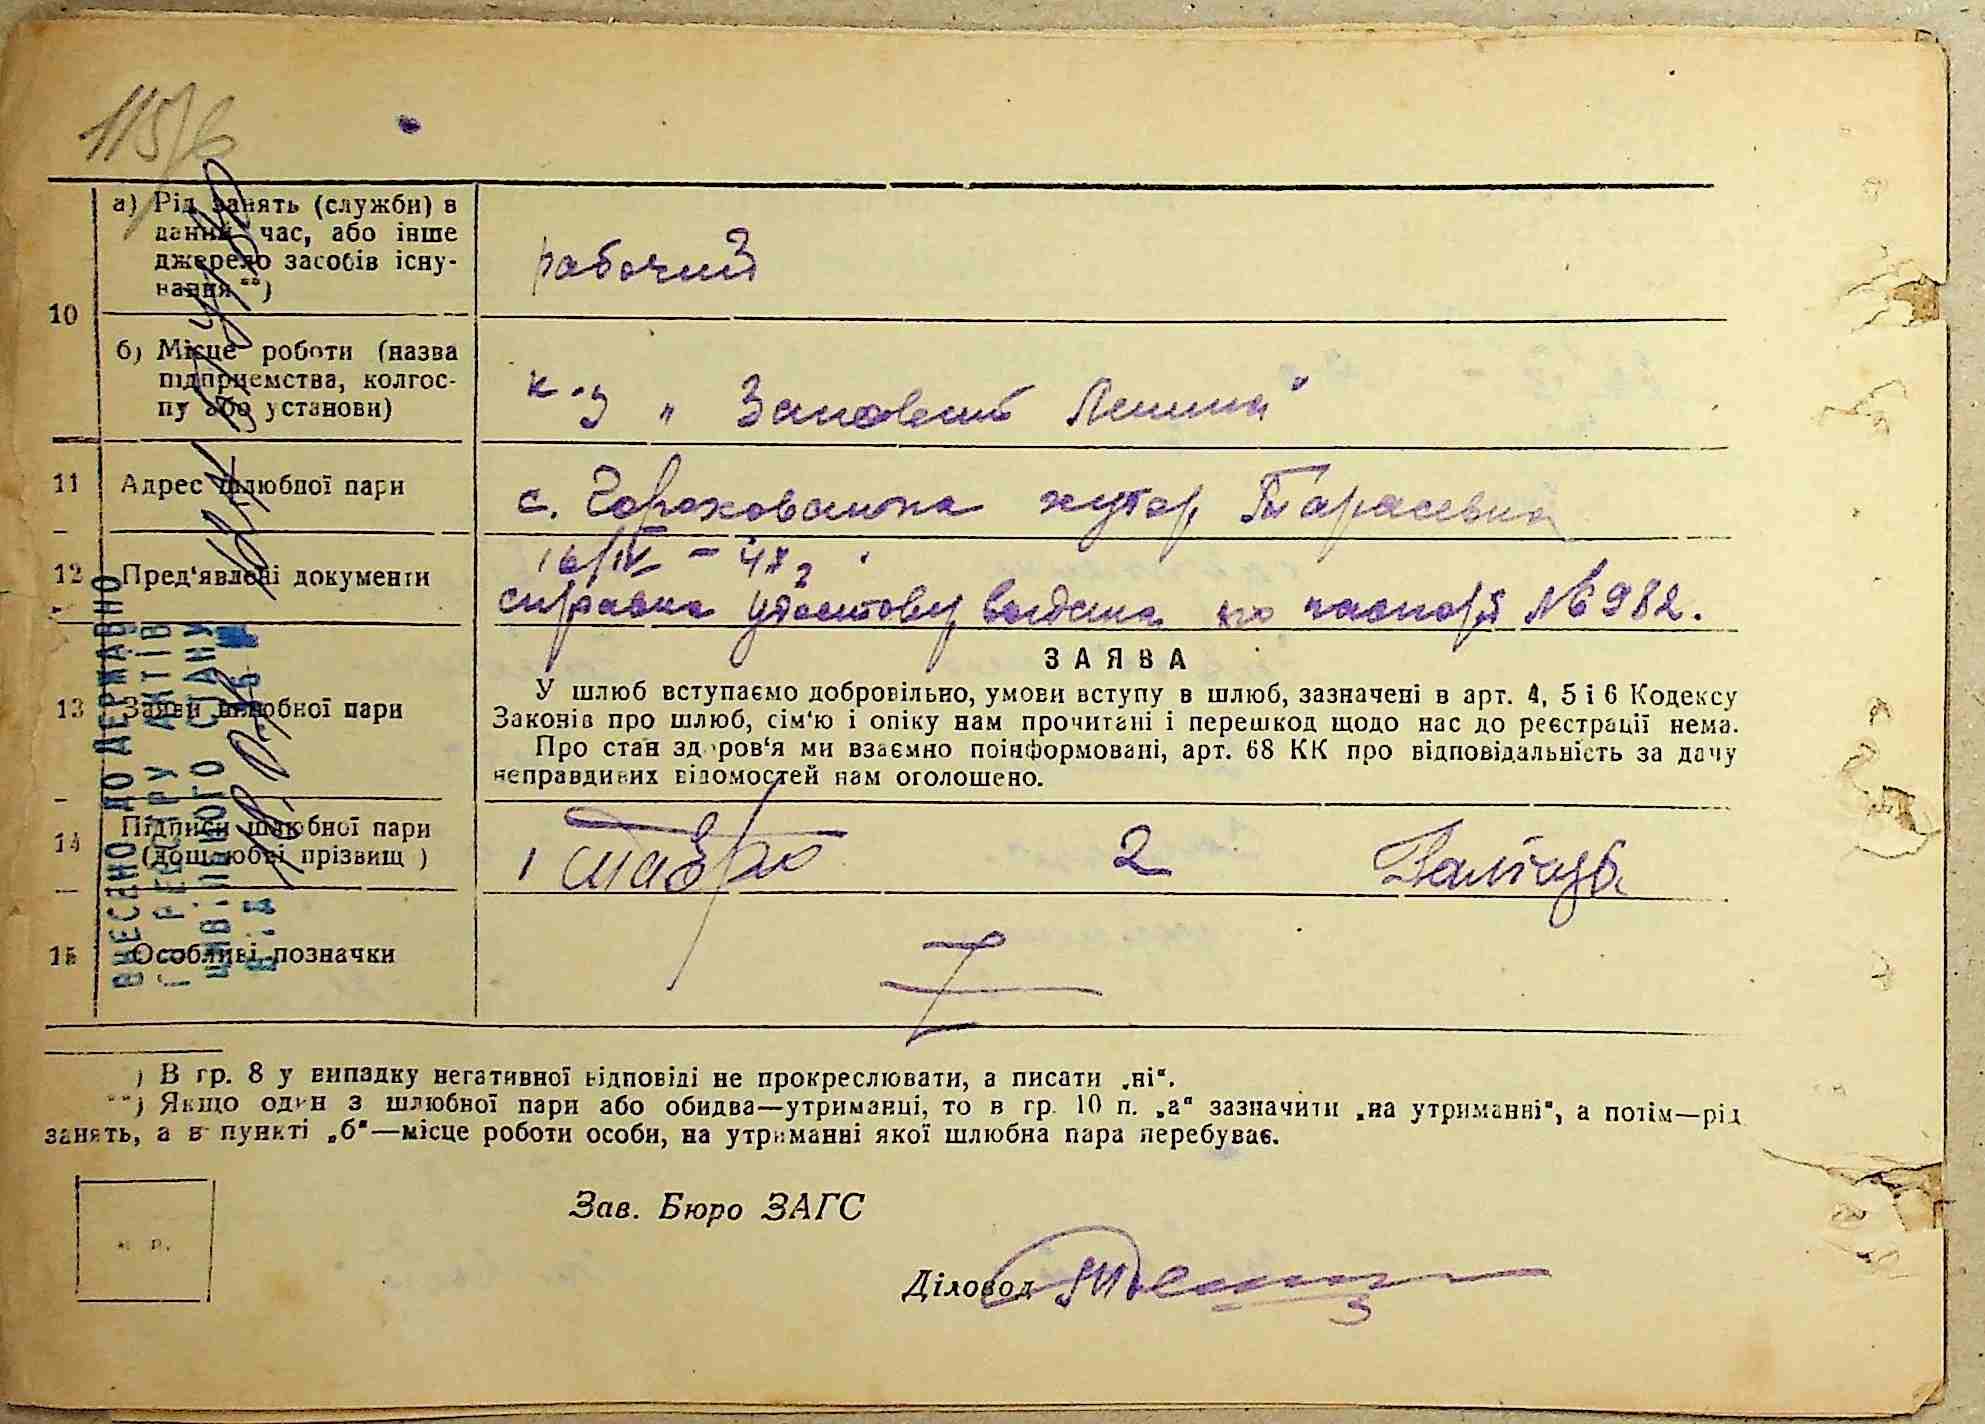 115/6
а) Рід занять (служби) в
даний час, або інше
джерело засобів існу-
вання **)
рабочий
10
б) Місце роботи (назва
підприємства, колгос-
пу або установи)
к-з „ Заповит Ленина"
11 Адрес шлюбної пари
с. Гороховатка хутор Тарасевка
12 Пред'явлені документи
16/IV – 47 г
справка удостовер выдана по паспорт № 6982.
ЗАЯВА
13 Заяви шлюбної пари
У шлюб вступаємо добровільно, умови вступу в шлюб, зазначені в арт. 4, 5 і 6 Кодексу
Законів про шлюб, сім'ю і опіку нам прочитані і перешкод щодо нас до реєстрації нема.
Про стан здоров'я ми взаємно поінформовані, арт. 68 КК про відповідальність за дачу
неправдивих відомостей нам оголошено.
14 Підписи шлюбної пари
(дошлюбні прізвищ )
1
2
15 Особливі позначки
ВНЕСЕНО ДО ДЕРЖАВНО
ГО РЕЄСТРУ АКТІВ
ЦИВІЛЬНОГО СТАНУ
) В гр. 8 у випадку негативної відповіді не прокреслювати, а писати „ні".
**) Якщо один з шлюбної пари або обидва—утриманці, то в гр. 10 п. „а" зазначити „на утриманні", а потім—рід
занять, а в пункті „б"—місце роботи особи, на утриманні якої шлюбна пара перебуває.
Зав. Бюро ЗАГС
м. п.
Діловод